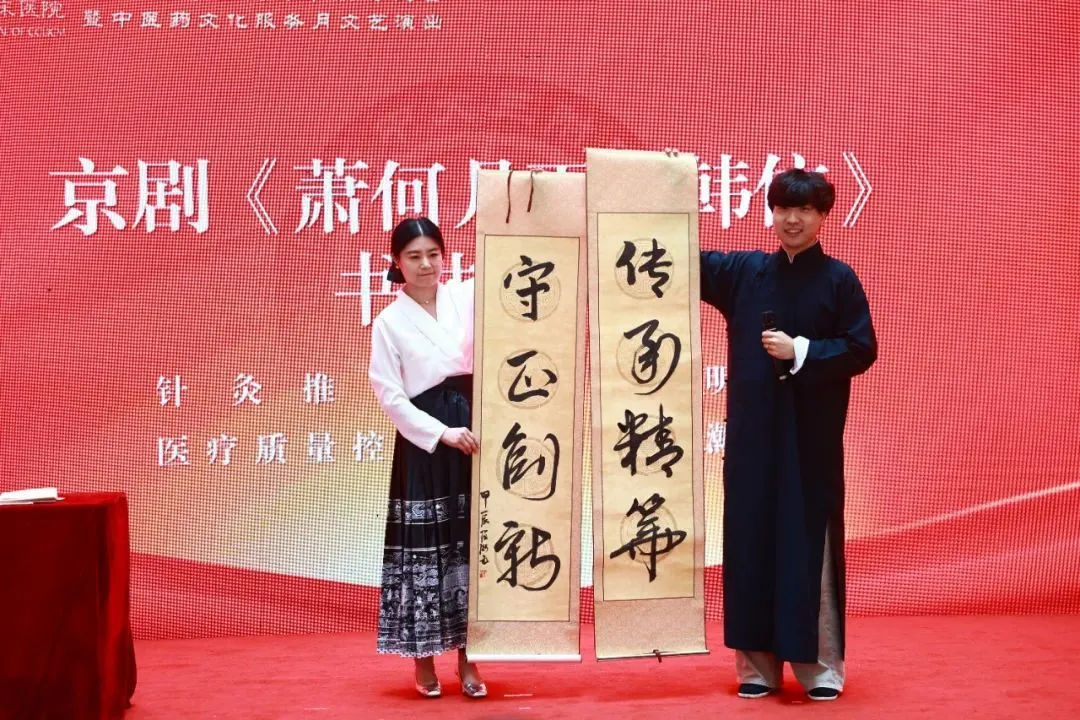 宋医院
暨中医药文化服务月文艺演出
京剧《萧何月下 韩信》
书法
针灸推 明
医疗质量控
传承精华
守正创新
甲辰